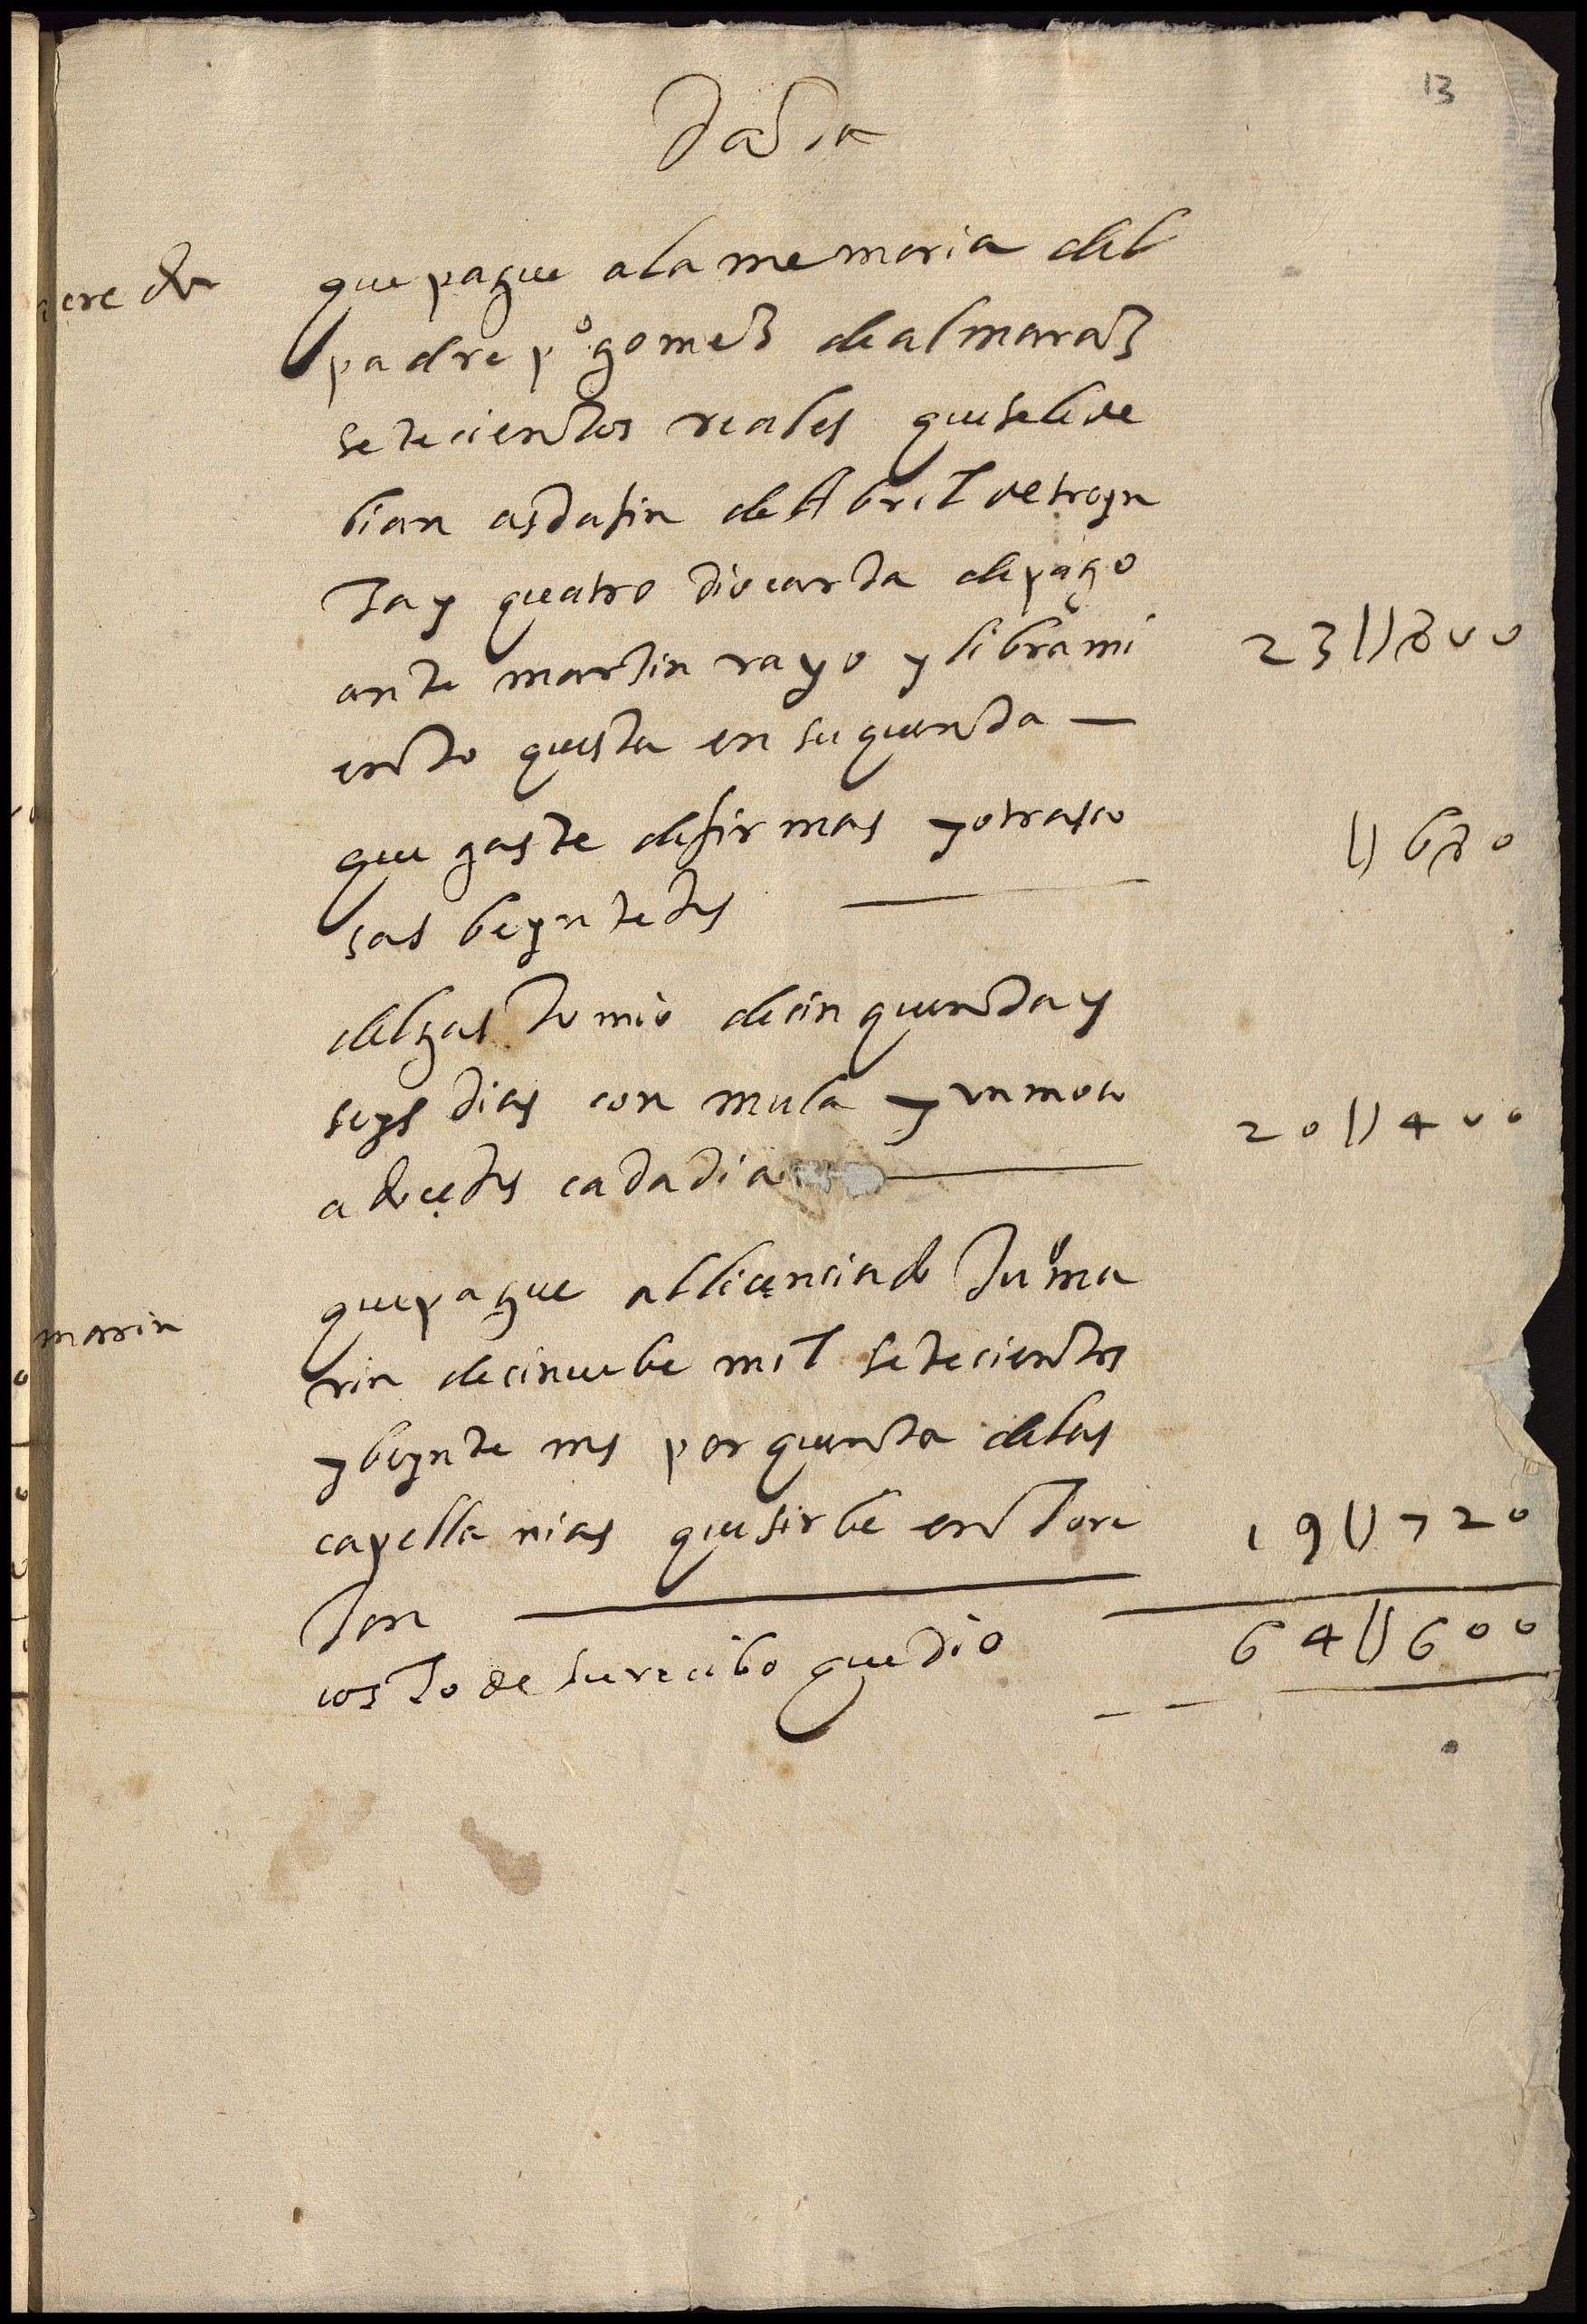 13
Data
que pague a la memoria del
padre pº gomez de almaraz
setecientos reales que se le de
bian asta fin de Abril de treyn
ta y quatro dio carta de pago
ante martin rayo y librami
23U800
ento questa en su quenta —
que gaste de firmas y otras co
U680
sas beynte Rs
del gasto mio de cinquenta y
seys dias con mula y un moço
20U400
a doçe Rs cada dia
que pague al licenciado Juº ma
marin
rin decinuebe mil setecientos
y beynte ms por quenta de las
capellanias que sirbe en Tore
19U720
Jon
64U600
costo de su recibo que dio